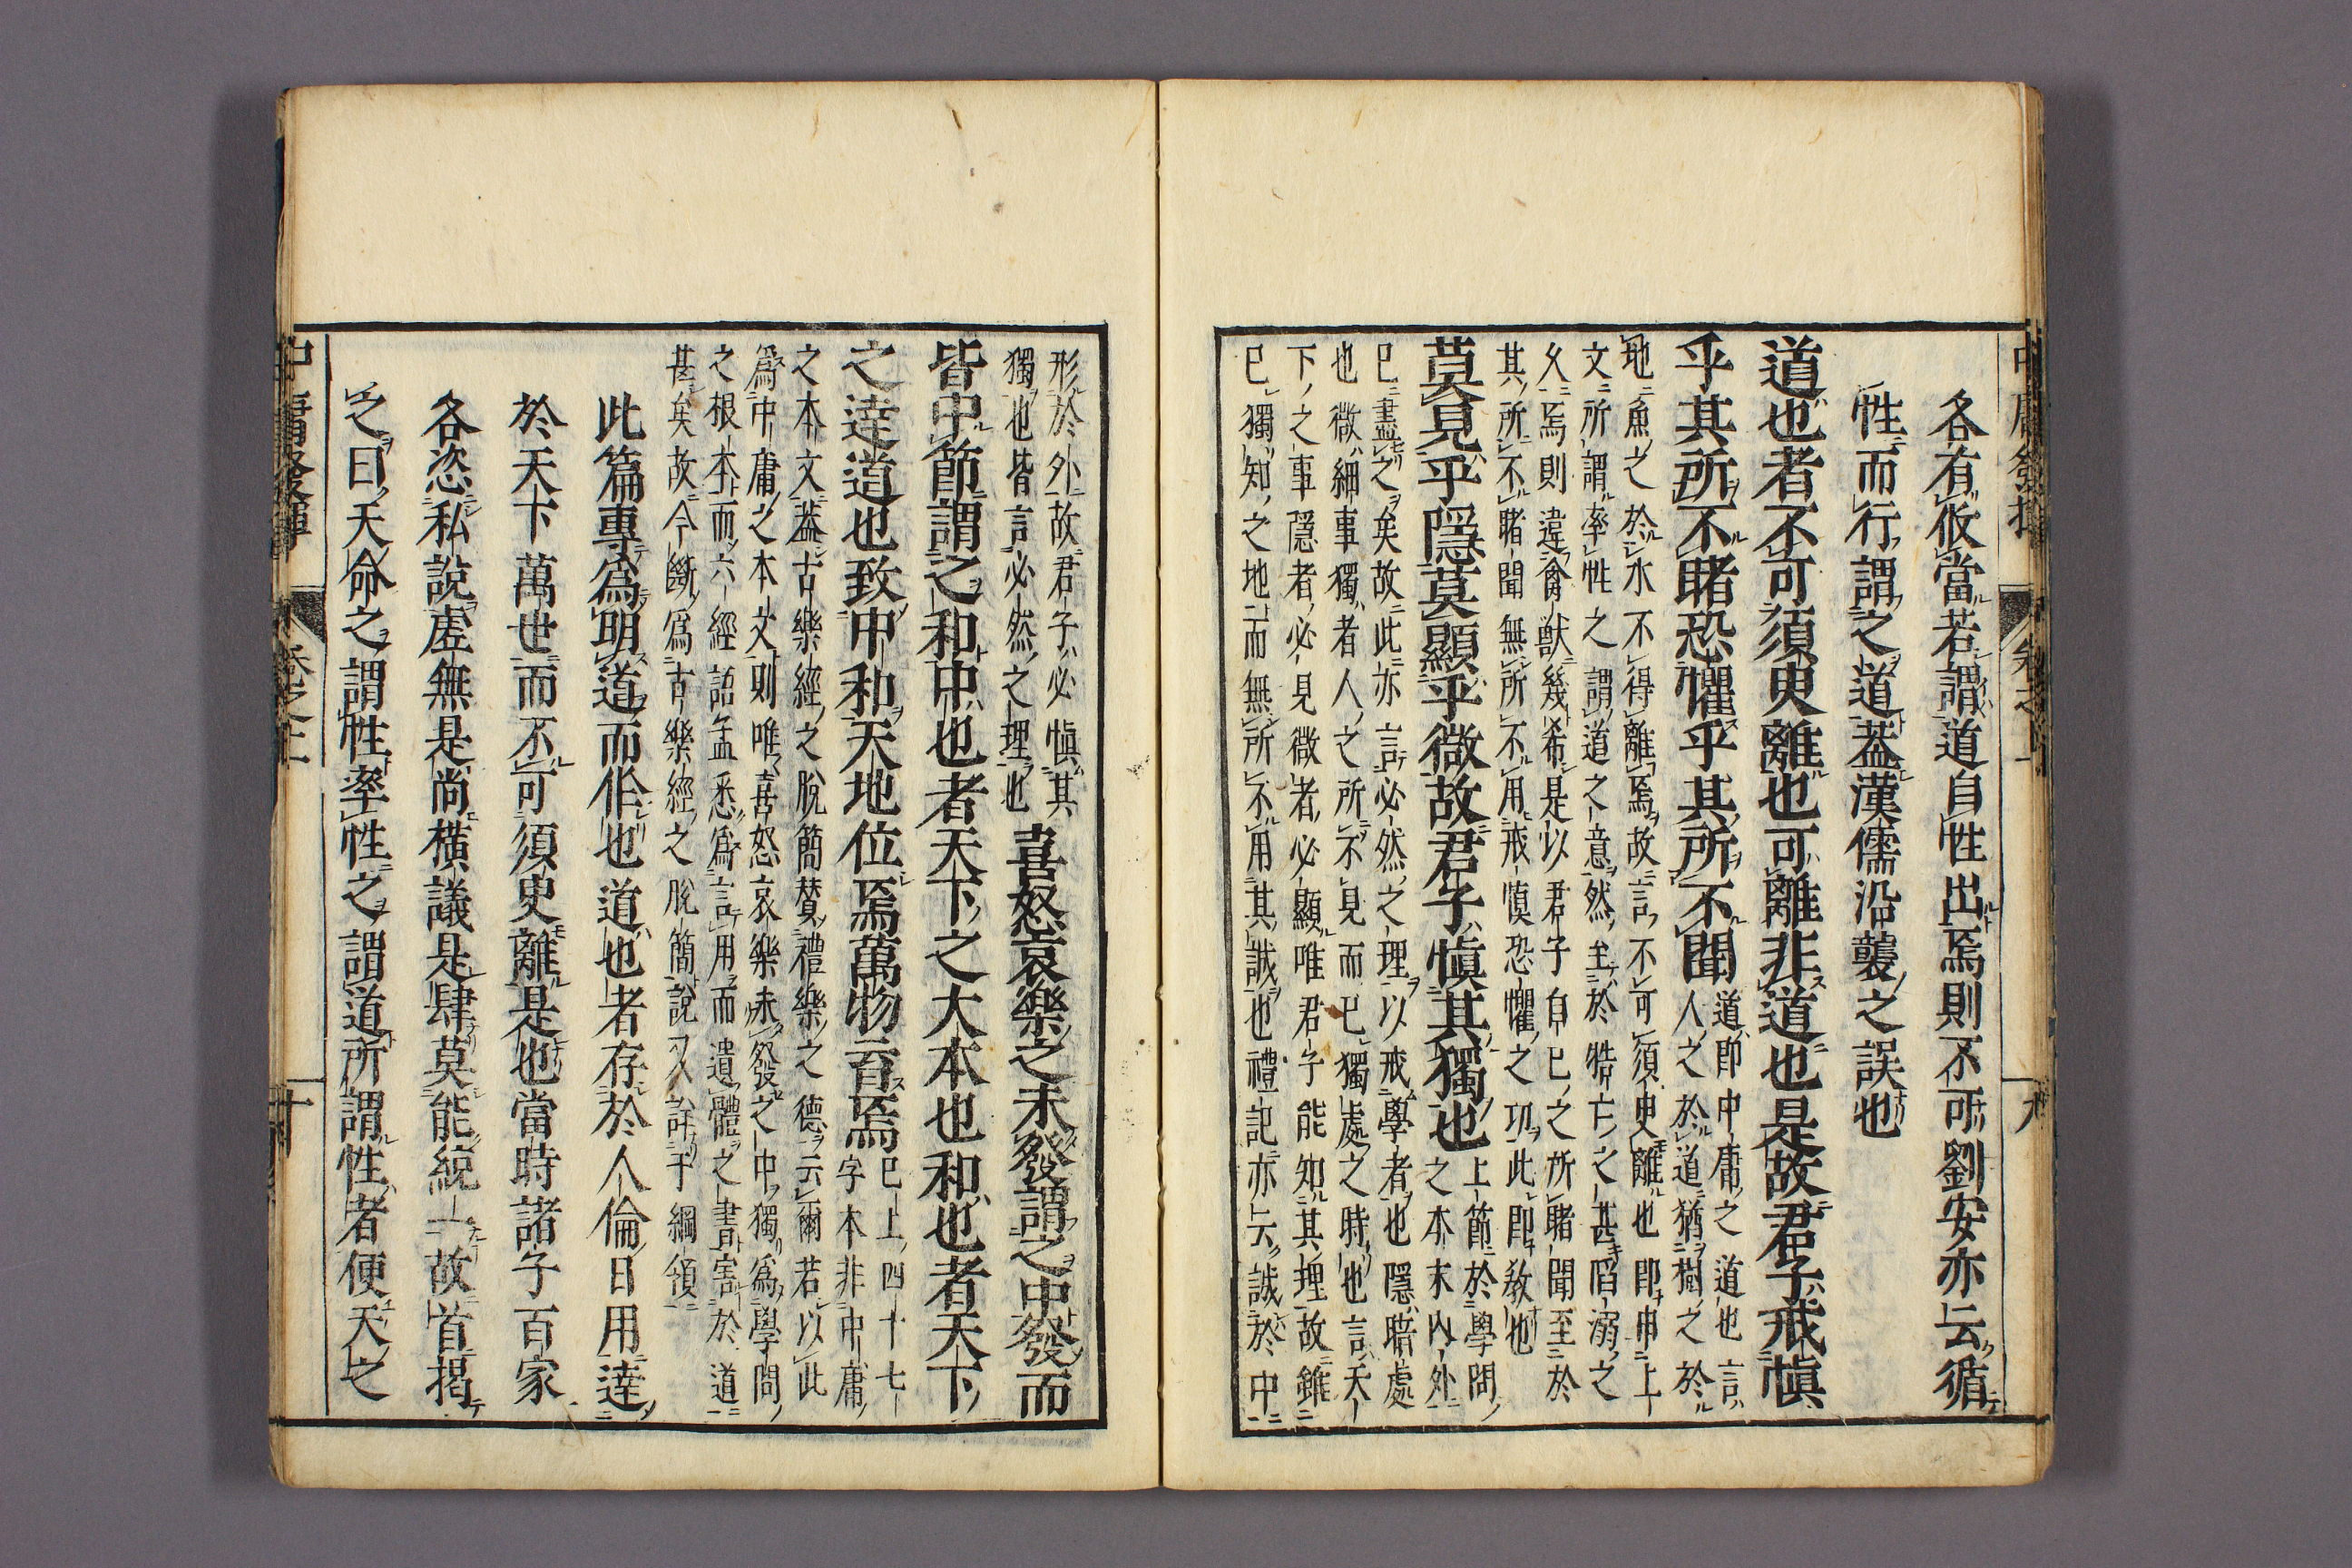 各有攸當若謂道自性出焉則不可劉安亦云循
性而行謂之道蓋漢儒沿襲之誤也
道也者不可須臾離也可離非道也是故君子戒慎
乎其所不睹恐懼乎其所不聞道即中庸之道也言
人之於道猶樹之於
地魚之於水不得離焉故言不可須臾離也即申上
文所謂率性之謂道之意然至於牿亡之甚陷溺之
久焉則違禽獸幾希是以君子自已之所睹聞至於
其所不睹聞無所不用戒慎恐懼之功此即敎也
莫見乎隱莫顯乎微故君子慎其獨也上節於學問
之本末內外
已盡之矣故此亦言必然之理以戒學者也隱暗處
也微細事獨者人之所不見而已獨處之時也言天
下之事隱者必見微者必顯唯君子能知其理故雖
已獨知之地而無所不用其誠也禮記亦云誠於中
形於外故君子必慎其
獨也皆言必然之理也
喜怒哀樂之未發謂之中發而
皆中節謂之和中也者天下之大本也和也者天下
之達道也致中和天地位焉萬物育焉已上四十七
字本非中庸
之本文蓋古樂經之脫簡贊禮樂之德云爾若以此
爲中庸之本文則唯喜怒哀樂未發之中獨爲學問
之根本而六經語孟悉爲言用而遺體之書害於道
甚矣故今斷爲古樂經之脫簡說又詳于綱領
此篇專爲明道而作也道也者存於人倫日用達
於天下萬世而不可須臾離是也當時諸子百家
各恣私說虛無是尚橫議是肆莫能統一故首揭
之曰天命之謂性率性之謂道所謂性者便天之
中庸發揮
十